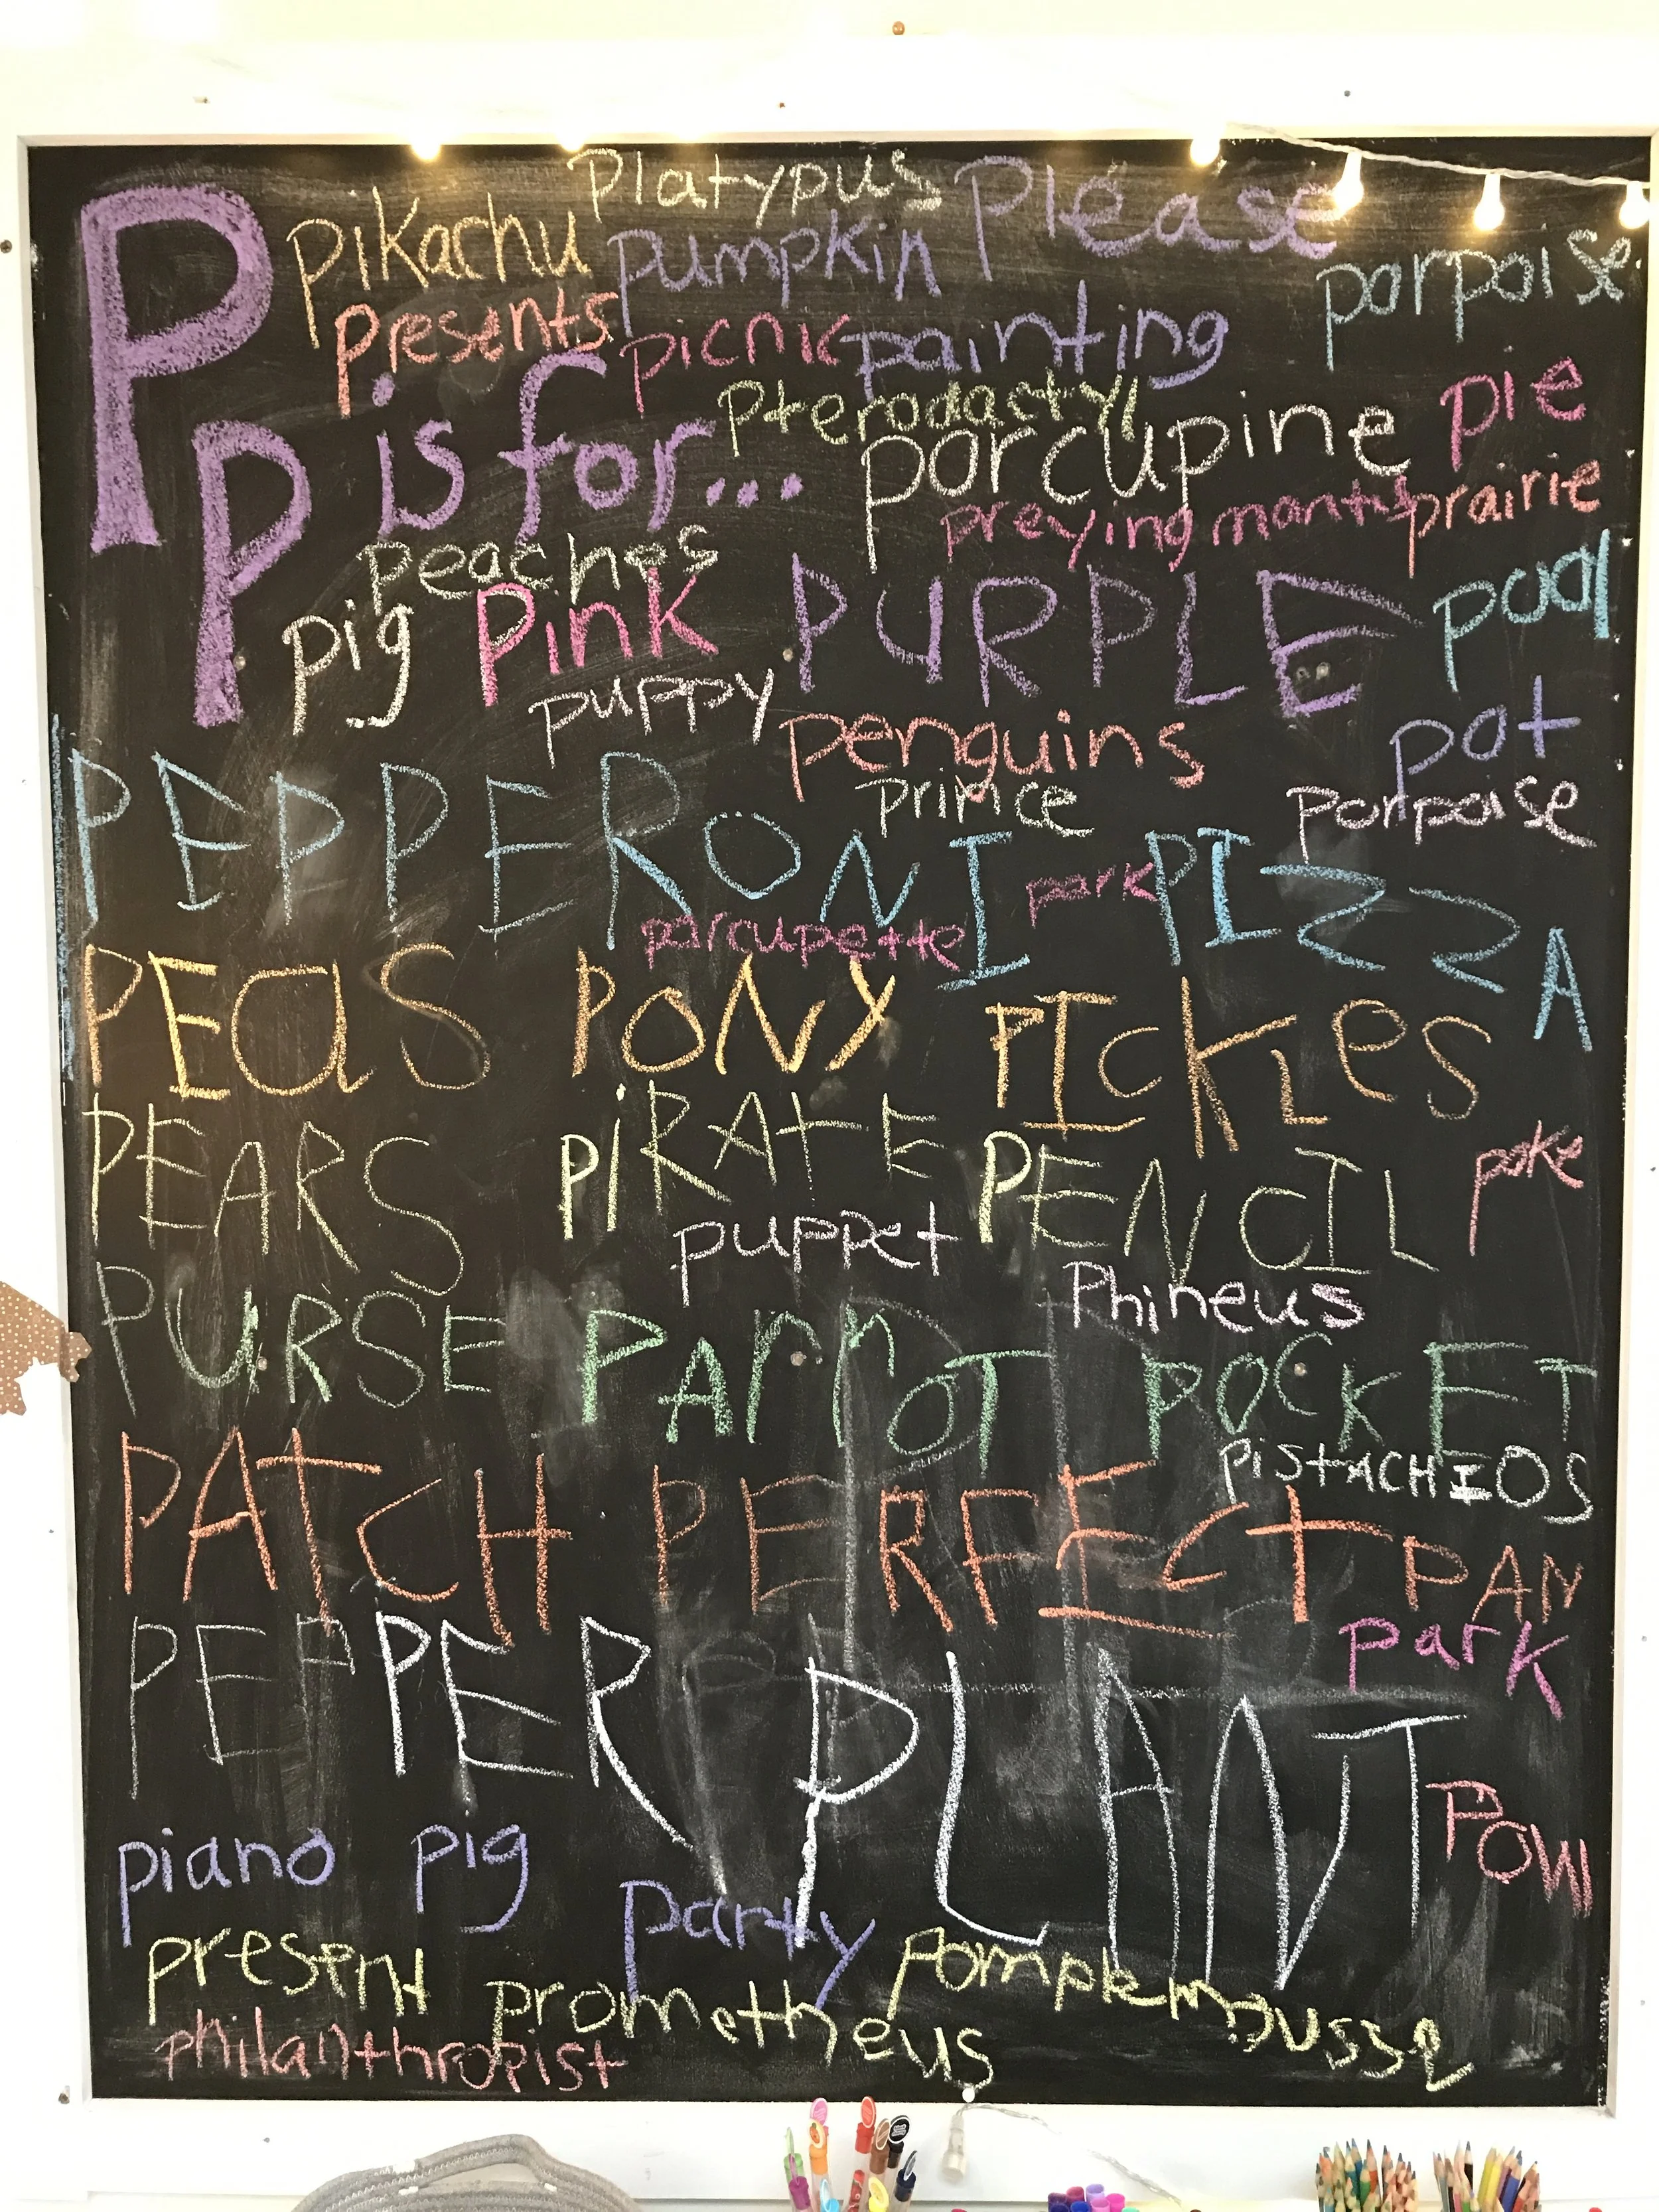 Platypus Please
P pikachu pumpkin porpoise
presents picnic painting
pterodactyl pie
P is for... porcupine
preying mantis prairie
peaches
pig Pink PURPLE pool
puppy
penguins pot
prince porpoise
PEPPERONI PIZZA
park
porcupette
PEaS PONY PICKLeS
PEARS PiRATE PENCIL poke
puppet
Phineus
PURSE PArrOT POCKET
PiSTACHIOS
PATCH PERFECT PAN
park
PEPPER PLANT
POW
piano pig
party
present prometheus pomplemousse
philanthropist